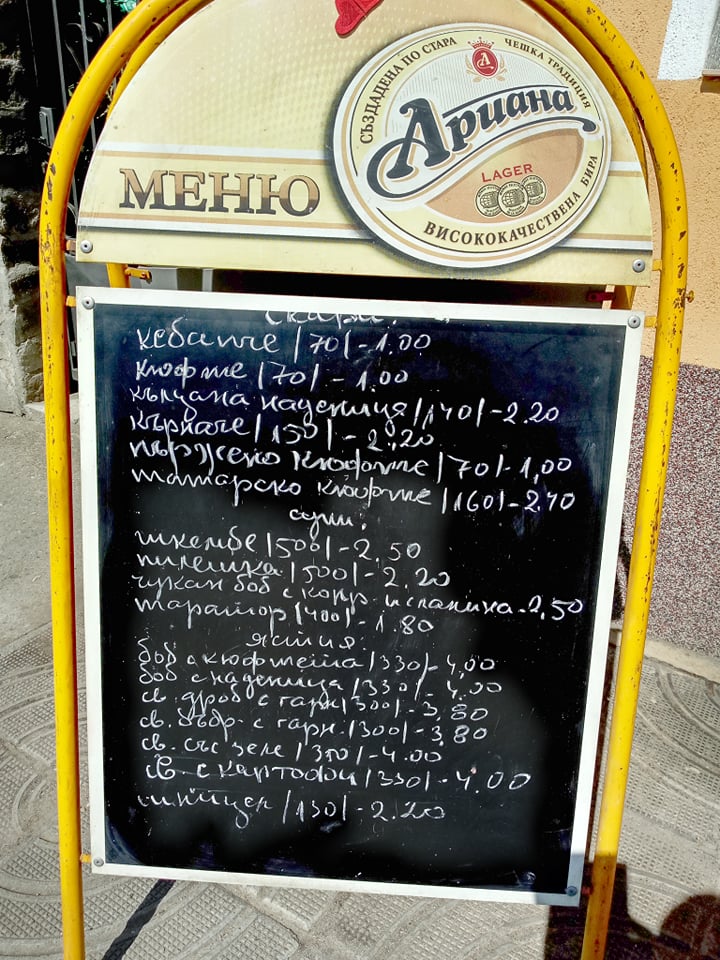 СЪЗДАДЕНА ПО СТАРА ЧЕШКА ТРАДИЦИЯ
А
Ариана
LAGER
ВИСОКОКАЧЕСТВЕНА БИРА
МЕНЮ
Скара:
кебапче /70/ - 1.00
кюфте /70/ - 1.00
кълцана наденица /140/ - 2.20
кърначе /150/ - 2.20
пържено кюфте /70/ - 1,00
татарско кюфте /160/ - 2.70
супи:
шкембе /500/ - 2,50
пилешка /500/ - 2.20
чукан боб с копр. и спанина - 2,50
таратор /400/ - 1.80
ястия
боб с кюфтета /330/ - 4,00
боб с наденица /330/ - 4.00
св. дроб с гарн /300/ - 3.80
св. бъбр. с гарн. /300/ - 3.80
св. със зеле /350/ - 4.00
св. с картофи /330/ - 4.00
шницел /130/ - 2.20